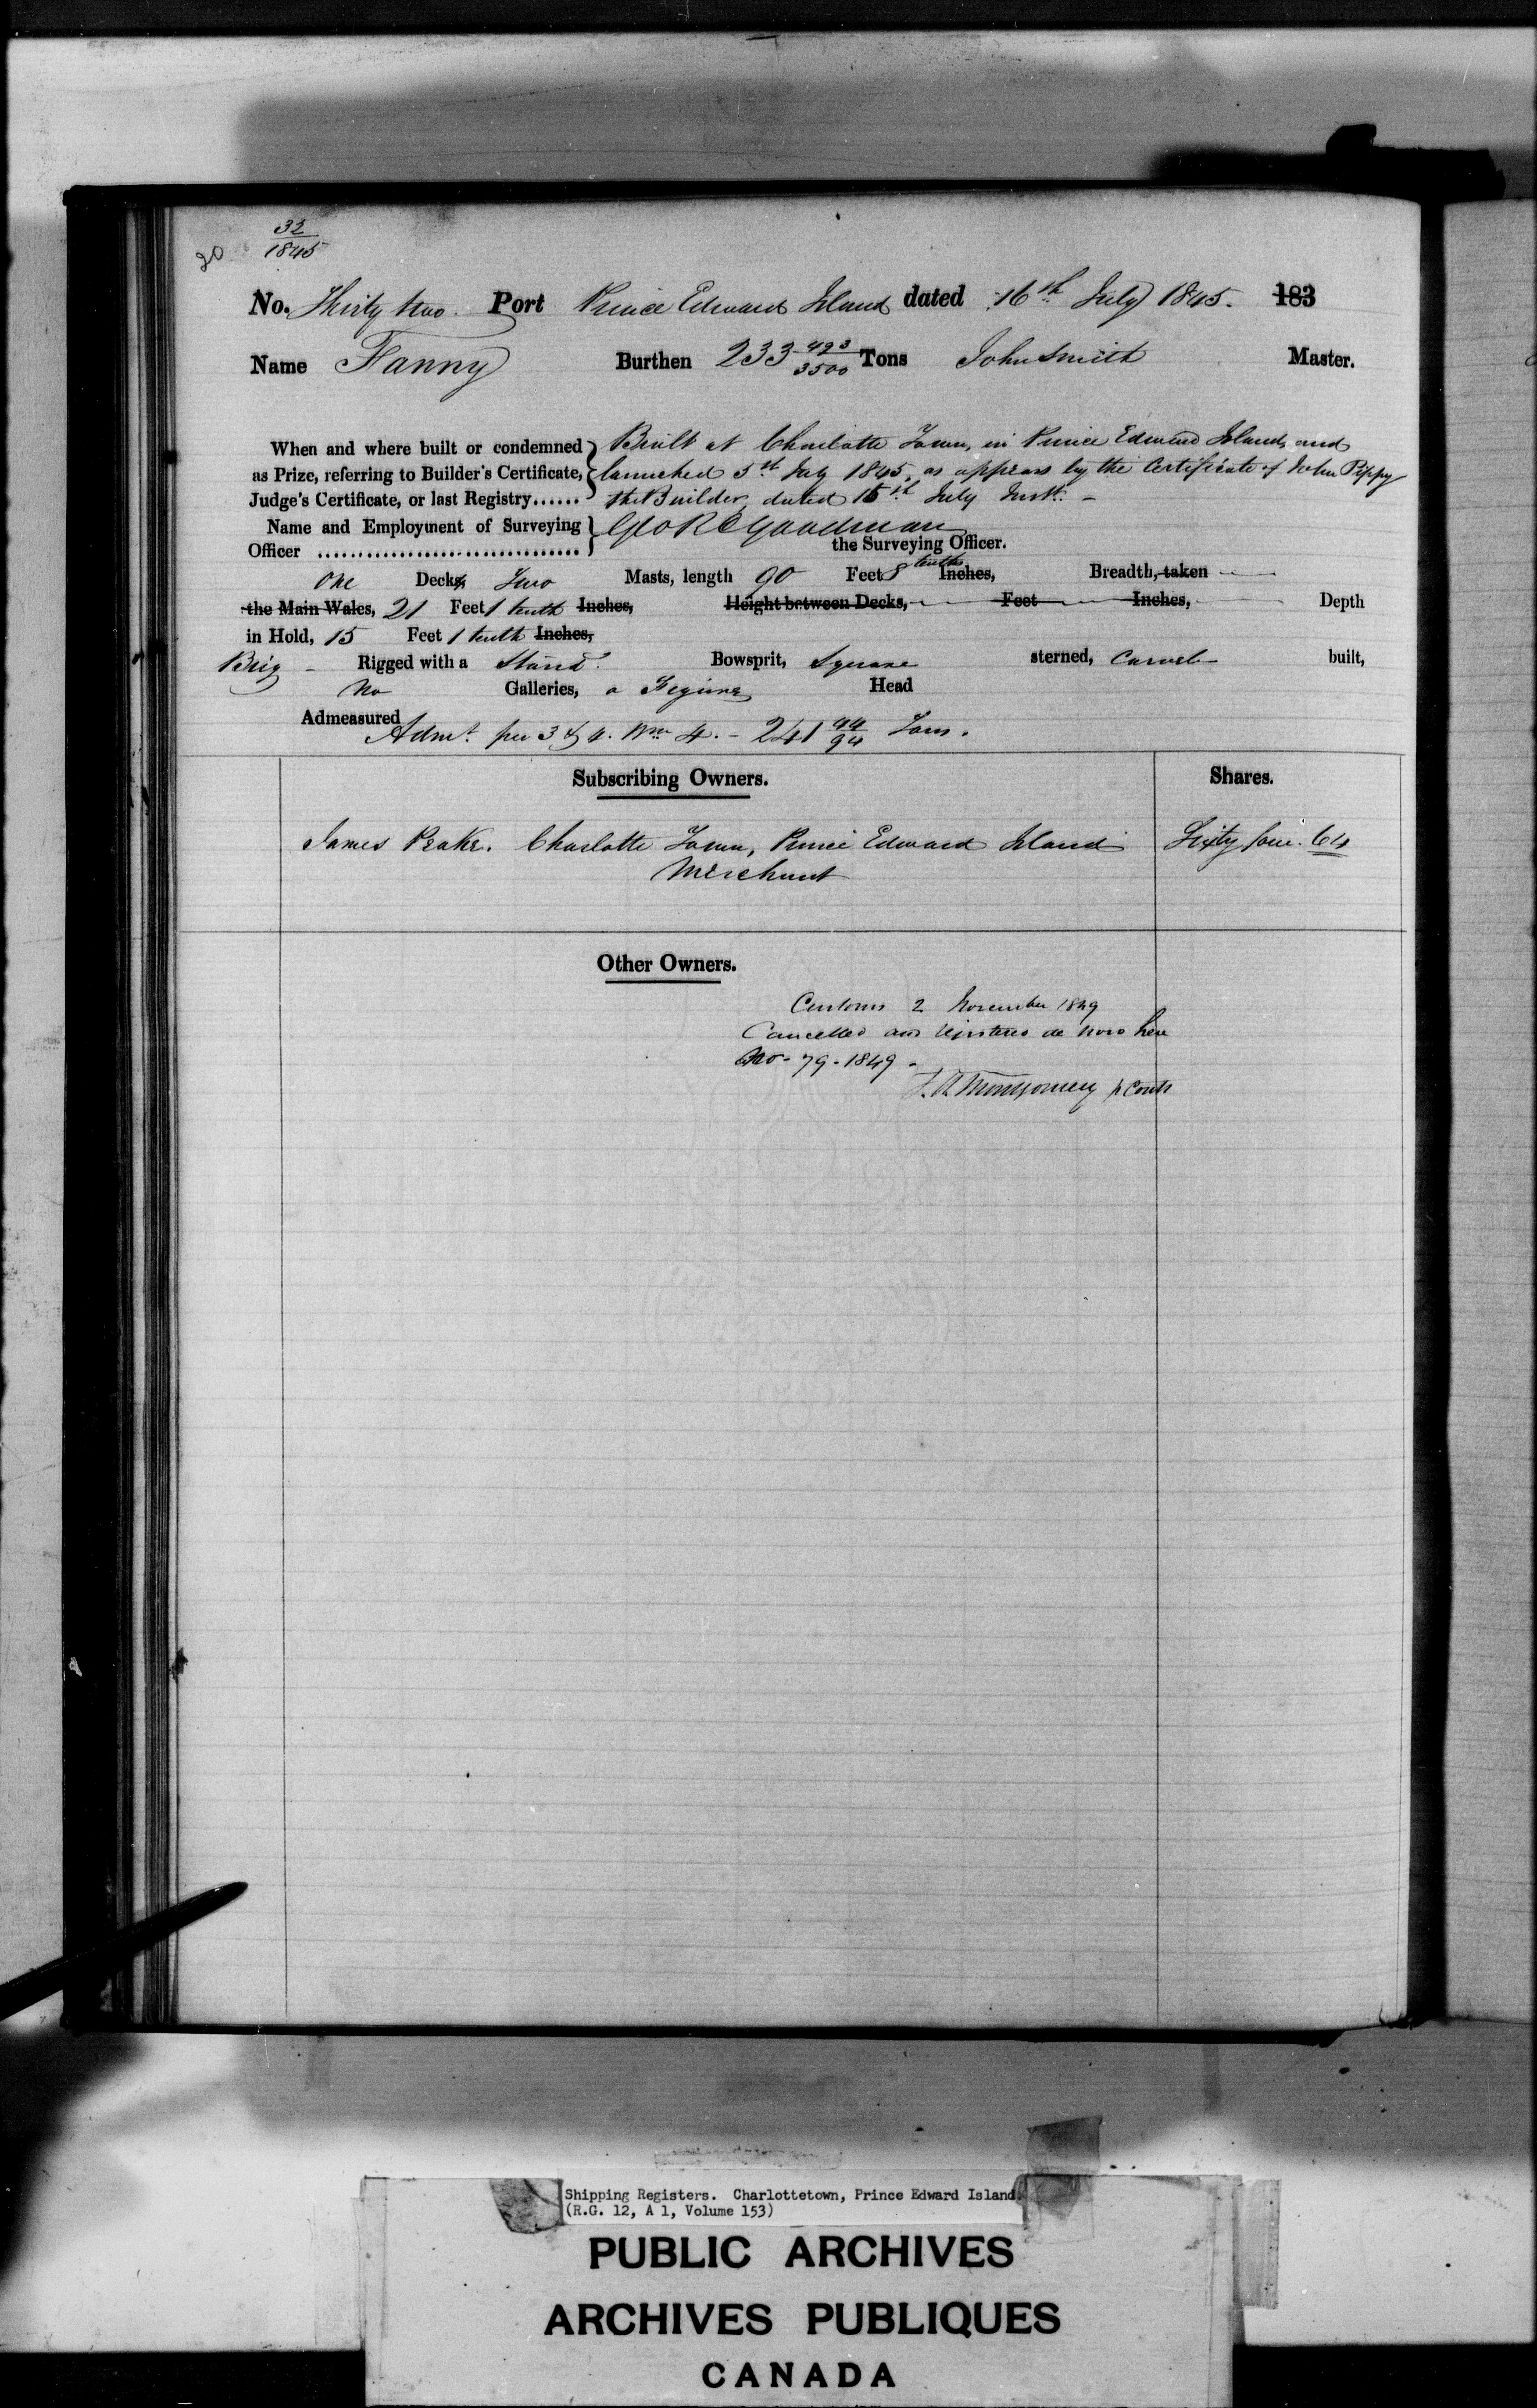 20
32
1845
No. Thirty two. Port Prince Edward Island dated 16th July 1845. 183
Name Fanny Burthen 233 423/3500 Tons John Smith Master.
When and where built or condemned Built at Charlotte Town, in Prince Edward Island, and
as Prize, referring to Builder's Certificate, launched 5th July 1845, as appears by the Certificate of John Pippy
Judge's Certificate, or last Registry...... the Builder, dated 15th July Inst. -
Name and Employment of Surveying Geo R Goodman
Officer ................................ the Surveying Officer.
One Decks, Two Masts, length 90 Feet 8 tenths Inches, Breadth, taken
the Main Wales, 21 Feet 1 tenth Inches, Height between Decks, Feet Inches, Depth
in Hold, 15 Feet 1 tenth Inches,
Brig - Rigged with a Stand. Bowsprit, Square sterned, Carvel built,
No Galleries, a Figure Head
Admeasured
Admt. per 3 & 4. Wm 4. - 241 44/94 Tons.
Subscribing Owners. Shares.
James Peake. Charlotte Town, Prince Edward Island Sixty four. 64
Merchant
Other Owners.
Customs 2 November 1849
Cancelled and registered de novo here
No. 79. 1849.
Montgomery
Shipping Registers. Charlottetown, Prince Edward Island.
(R.G. 12, A 1, Volume 153)
PUBLIC ARCHIVES
ARCHIVES PUBLIQUES
CANADA